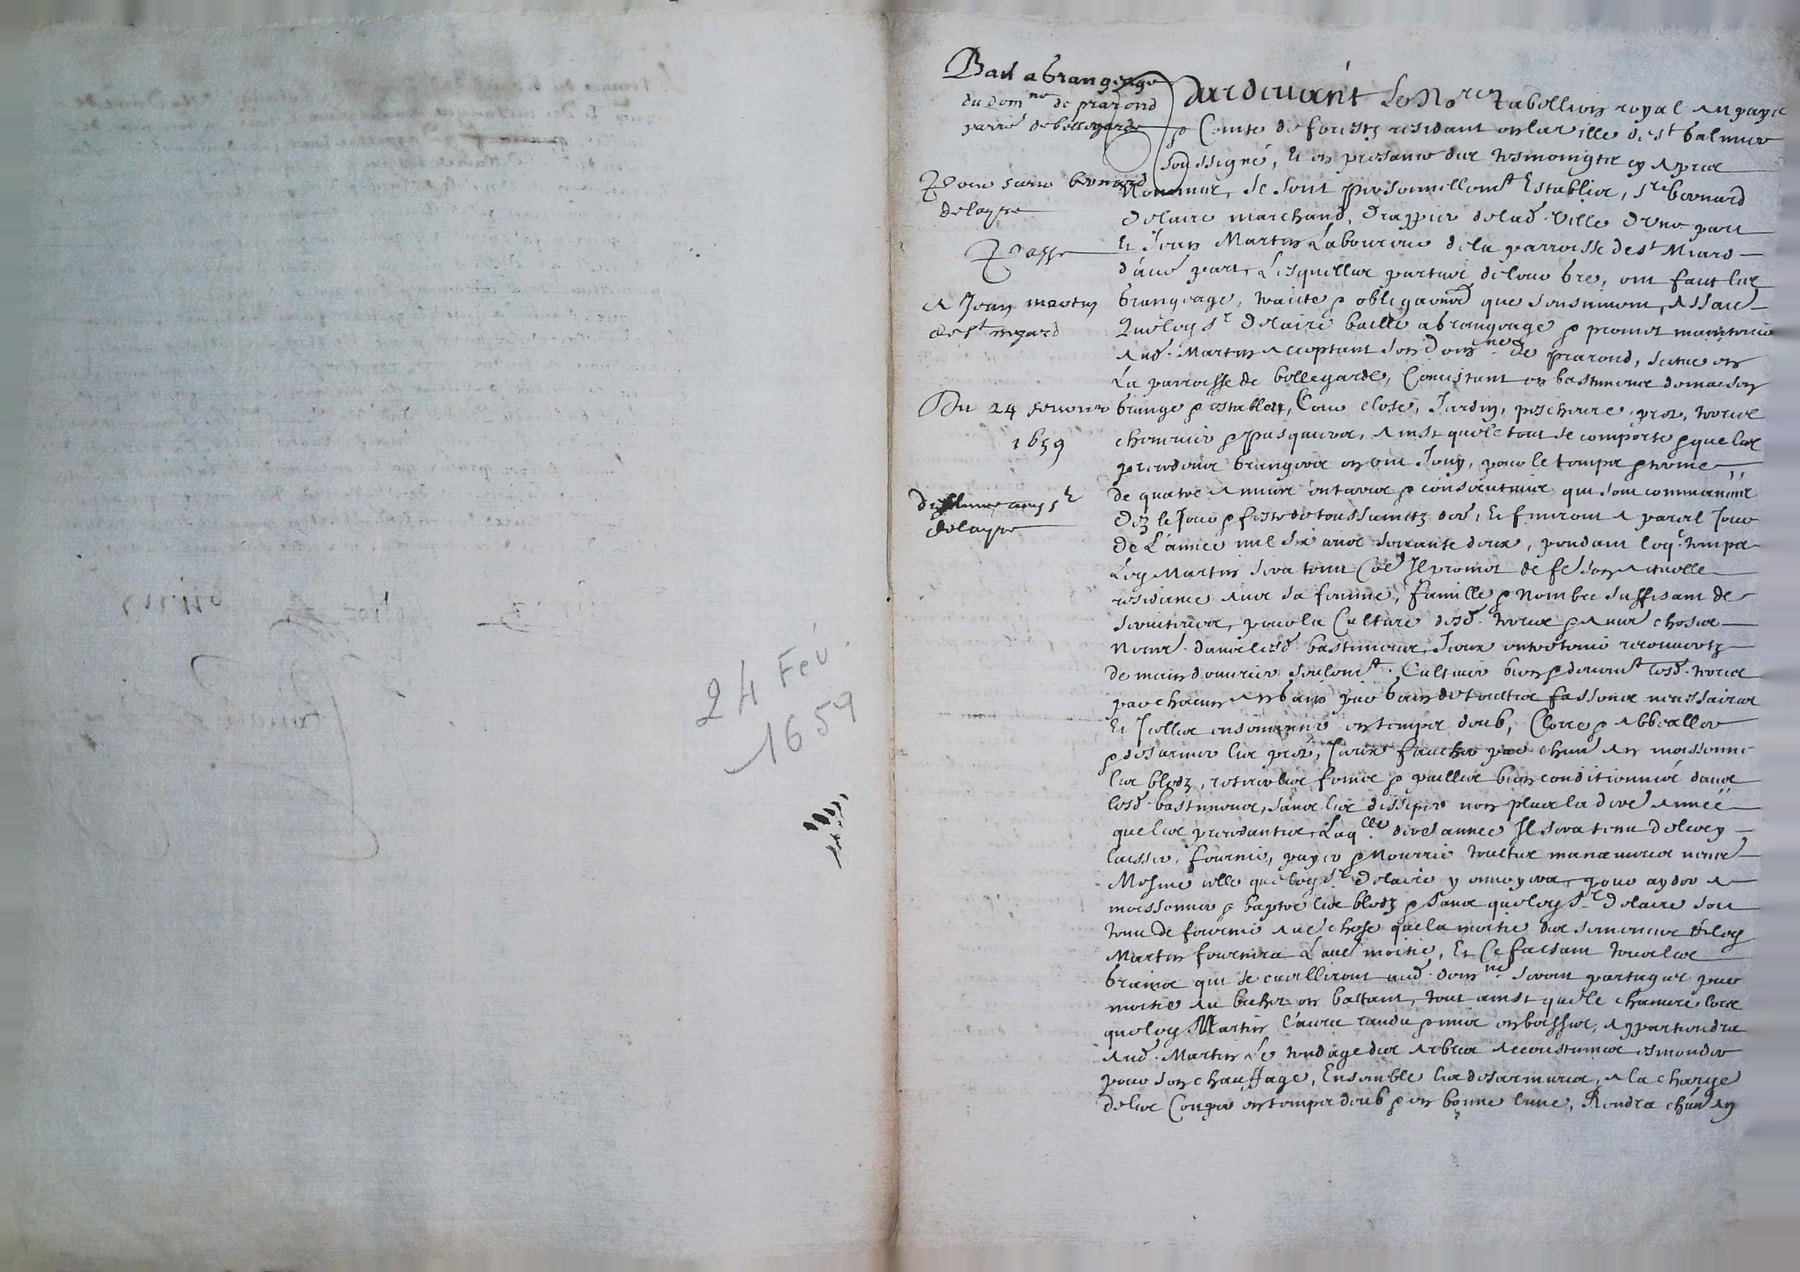 24 Fév.
1659
Bail a Grangeage
du dom.ne de prarond
parre de bellegarde
Pour sieur bernard
delayre
Passe
A Jean martin
de st myard
Du 24 fevrier
1659
delayre
Pardevant le No.re Tabellion royal au pays
& Comté de forestz residant en la ville de st Galmier
soussigné, Et en presance des tesmoingtz cy apres
Nommes, se sont personnellemt Establis, sre bernard
delaire marchand, drappier de lad. ville d'une part
Et Jean Martin Laboureur de la parroisse de st Miard
d'autre part, Lesquelles parties de leur gre, ont faict les
Grangeage, traicte & obligations que s'ensuivent, Assavr
Que led sr delaire baille a grangeage & promet maintenir
Aud. Martin acceptant son dom.ne de prarond, scitue en
La parroisse de bellegarde, Consistant en bastimens de maison
Grange & estables, Cour close, Jardin, pescherie, prez, terres
& pasquiers, Ainsi que le tout se comporte & que les
grangers en ont Jouy, pour le temps & terme
de quatre annees entieres & consecutives qui
dez le Jour & feste de toussainctz der, Et finiront a pareil Jour
de L'annee mil six cens soixante deux, pendant leq. temps
Led Martin sera tenu Coe Il promet de fe son actuelle
residance avec sa femme, famille & Nombre suffisant de
serviteurs, pour la Culture desd. terres & autres choses
dans lesd. bastimens, Iceux entretenir recouvertz
de main d'ouvrier seulemt, Cultiver bien & deuemt lesd. terres
par chacun an de touttes fassons necessaires
Et Icelles ensemencer en temps deub, Clorre &
les prez, Iceux faucher par chun an moissonner
les bledz, retirer les foins & pailles bien conditionnés dans
lesd. bastimens, sans les dissiper non plus la dre Année
que les precedantes, Laq.lle dre annee Il sera tenu
laisser, fournir, payer & Nourrir touttes manœuvres
Mesme celle que led sr delaire y envoyera, pour ayder a
moissonner & battre les bledz & sans que led sr delaire soit
tenu de fournir autre chose que la moitie des semences & led
Martin fournira L'autre moitié, Et Ce faisant tous les
Grains qui se cueilliront aud. dom.ne seront partages par
moitié au bichet en battant, tout ainsi que le chanvre lors
que led Martin l'aura randu & mis en boisses, appartiendra
Aud. Martin Le tondage des arbres accoustumes esmonder
pour son chauffage, Ensemble les, a la charge
de les Couper en temps deub & en bonne lune, Rendra chun an